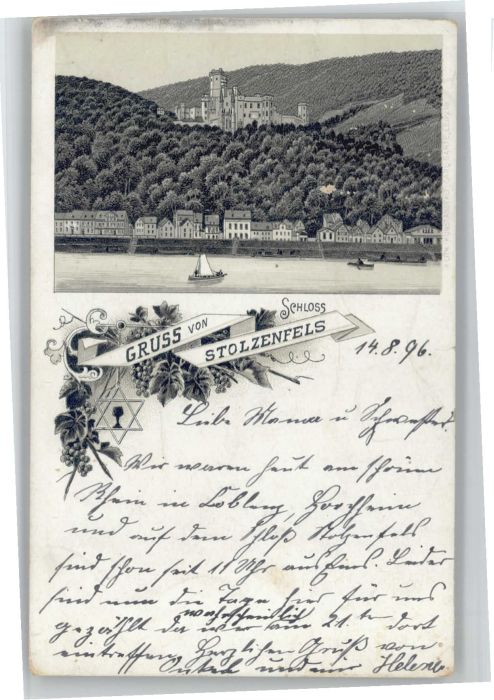 GRUSS VON
SCHLOSS
STOLZENFELS
14.8.96.
Liebe Mama u Schwester.
Wir waren heut am schönen
Rhein in Coblenz, Horchheim
und auf dem Schloß Stolzenfels
sind schon seit 11 Uhr aus Ems. Leider
sind nun die Tage hier für uns
gezählt da wir wahrscheinlich am 21. ten dort
eintreffen Herzlichen Gruß von
Onkel und mir Helene